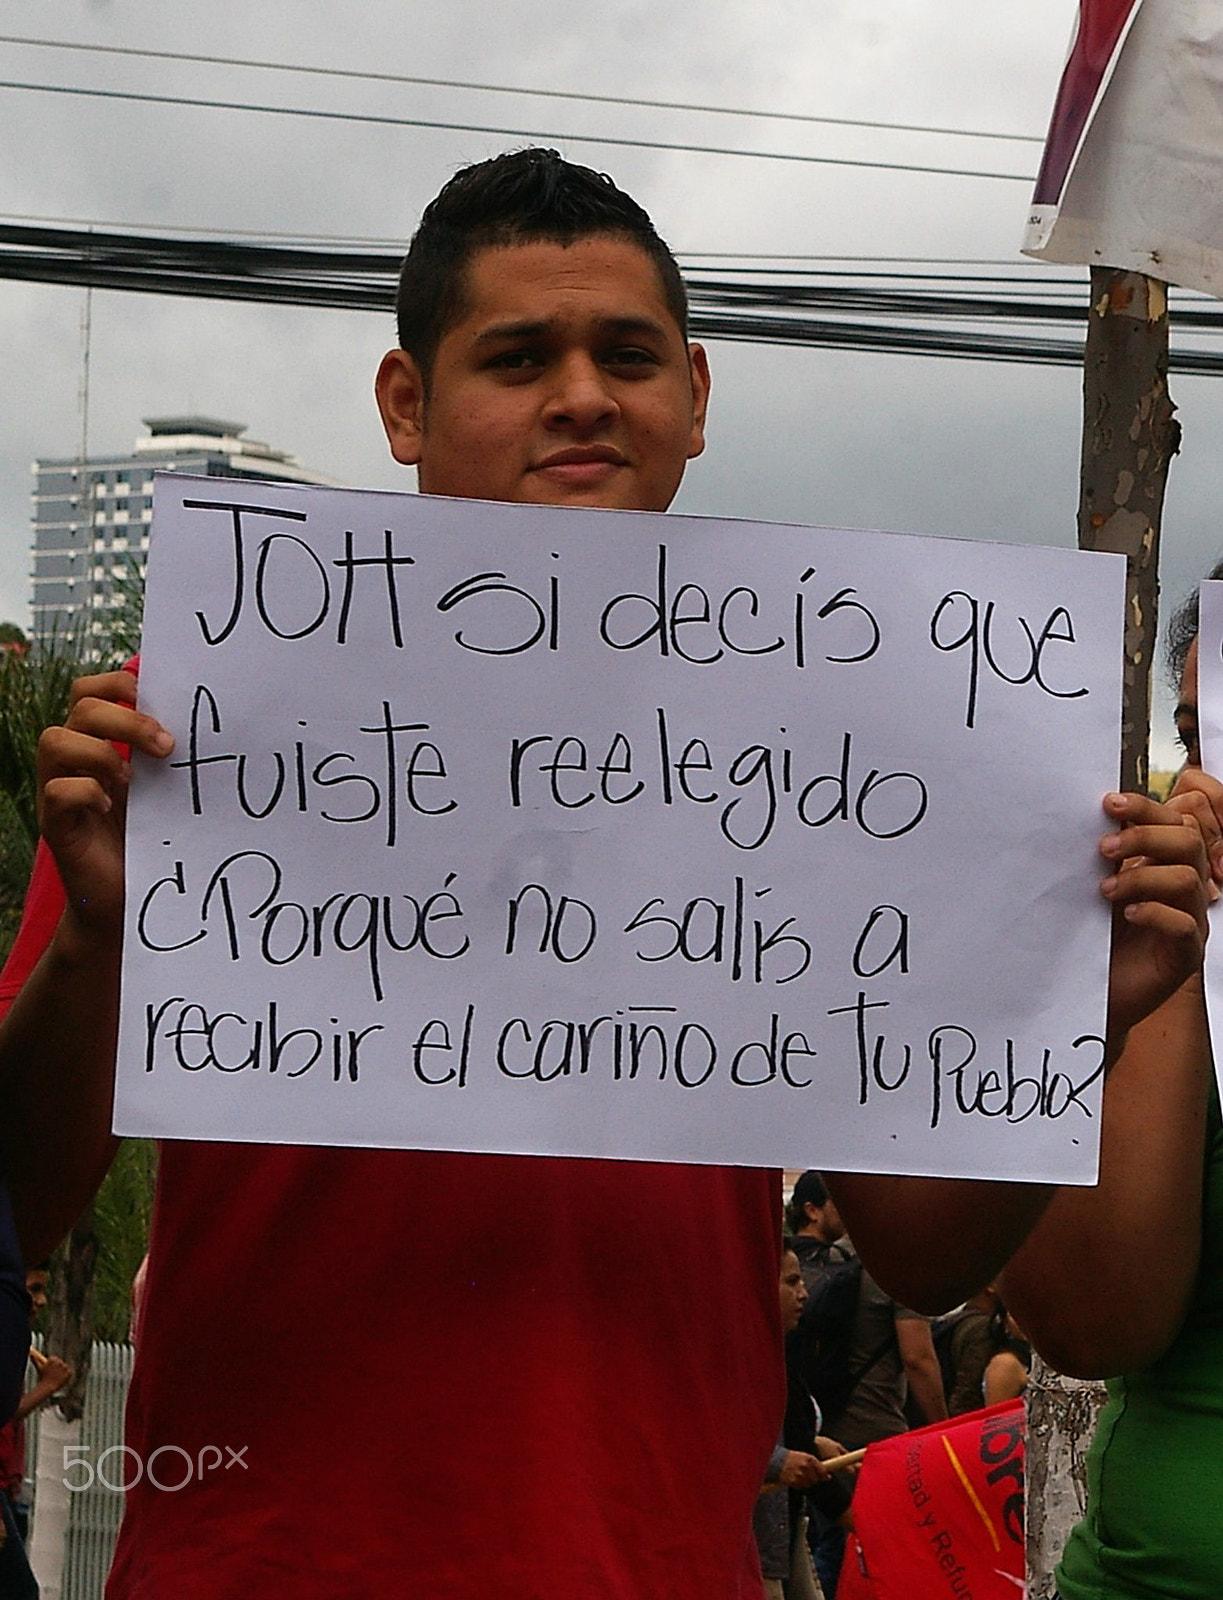 JOH si decís que
fuiste reelegido
¿Porqué no salís a
recibir el cariño de Tu Pueblo?
libre
ertad y Refun
500px